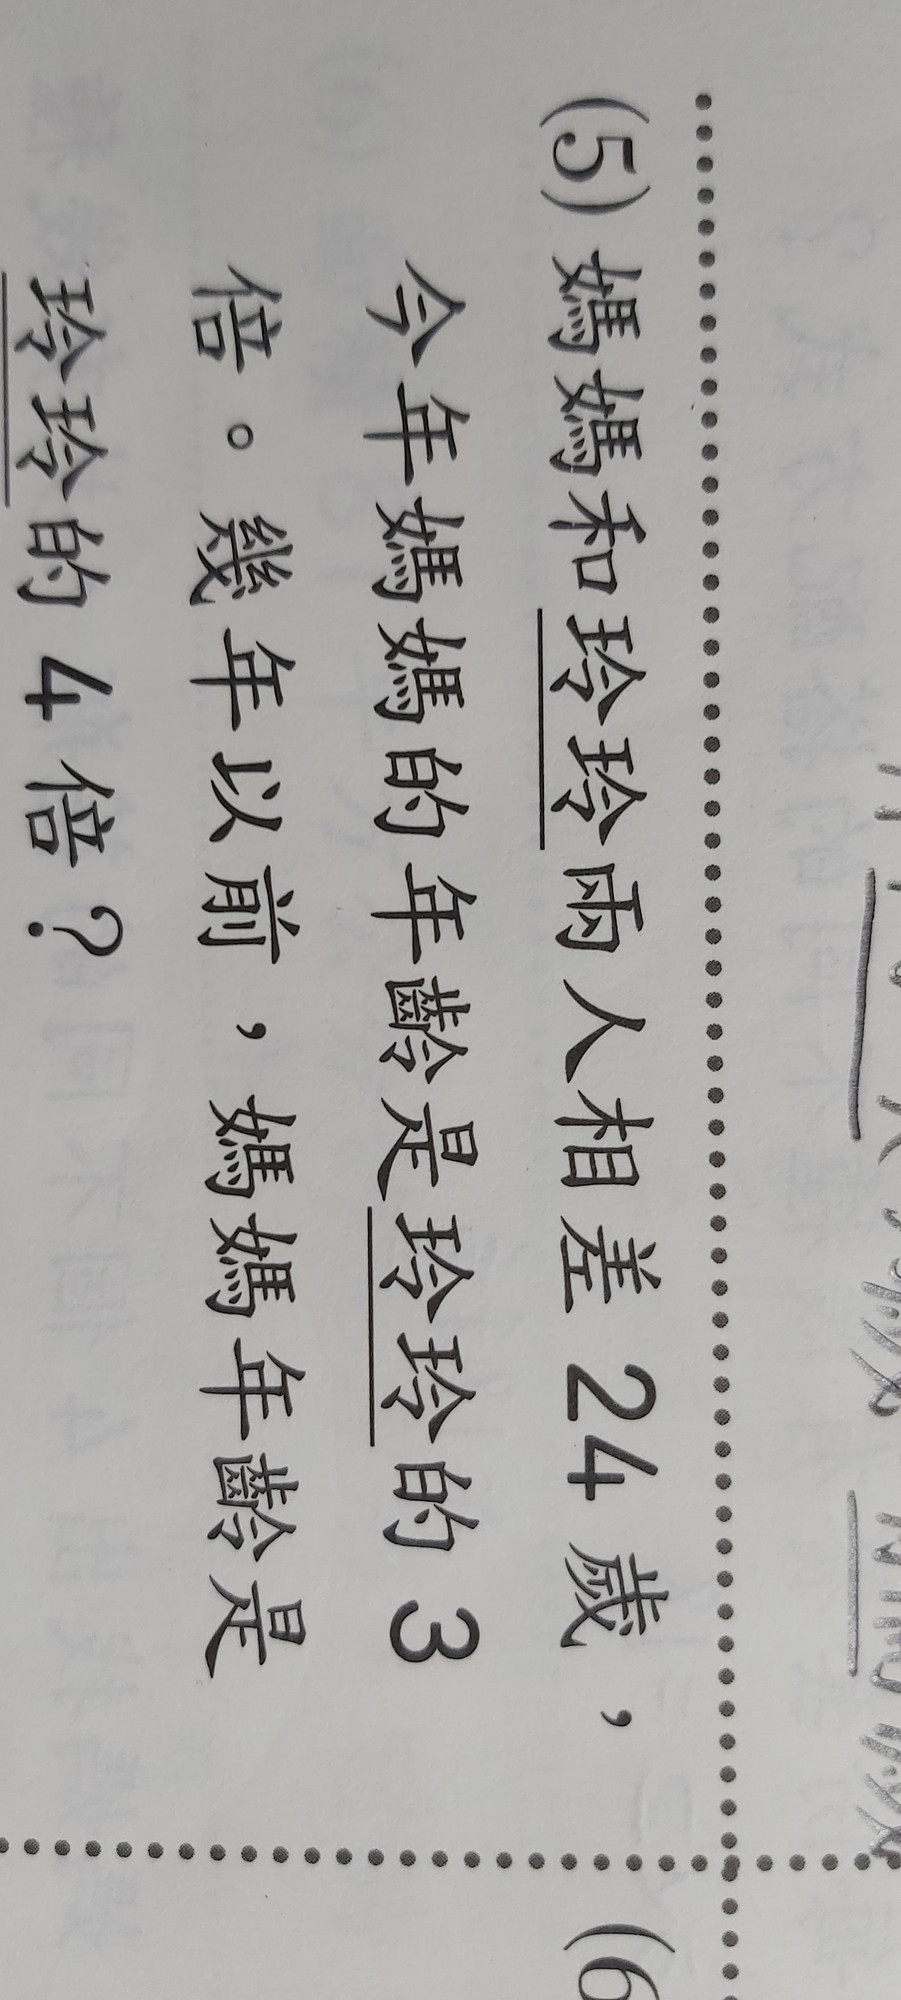 (5) 媽媽和玲玲兩人相差 24 歲，
今年媽媽的年齡是玲玲的 3
倍。幾年以前，媽媽年齡是
玲玲的 4 倍？
(6